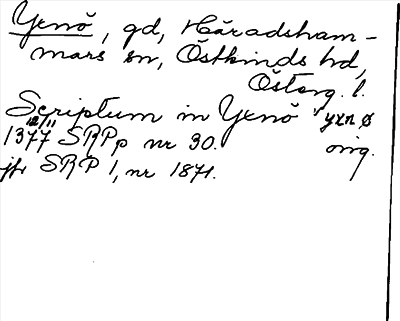 Yxnö, gd, Häradsham-
mars sn, Östkinds hd,
Österg. l.
Scriptum in Yxnö "yxn ø
12/11 1377 SRPp nr 30. orig.
jfr SRP 1, nr 1871.